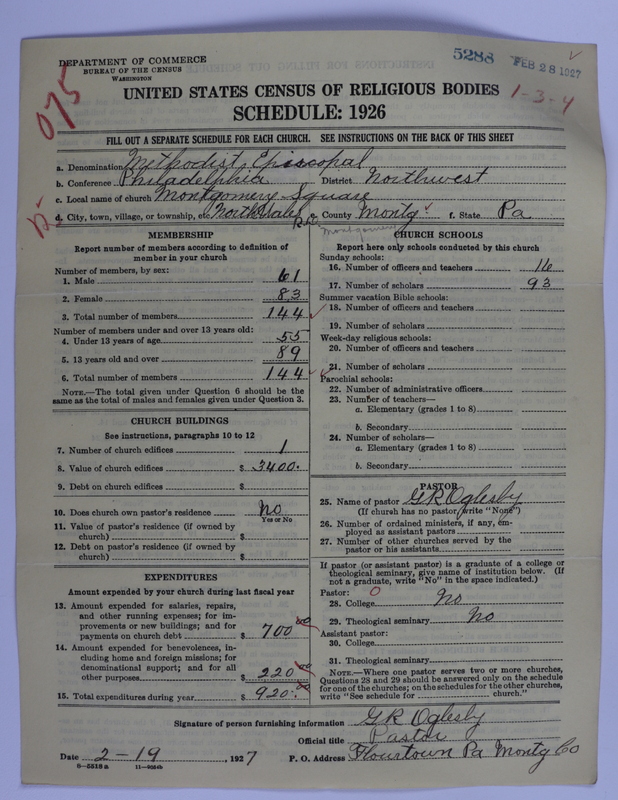 DEPARTMENT OF COMMERCE
BUREAU OF THE CENSUS
WASHINGTON
5288
FEB 28 1927
075
UNITED STATES CENSUS OF RELIGIOUS BODIES
1-3-4
SCHEDULE: 1926
FILL OUT A SEPARATE SCHEDULE FOR EACH CHURCH. SEE INSTRUCTIONS ON THE BACK OF THIS SHEET
a. Denomination Methodist Episcopal
b. Conference Philadelphia District Northwest
c. Local name of church Montgomery Square
d. City, town, village, or township, etc. North Wales e. County Montg f. State Pa
Montgomery
MEMBERSHIP
Report number of members according to definition of
member in your church
Number of members, by sex:
1. Male 61
2. Female 83
3. Total number of members 144
Number of members under and over 13 years old:
4. Under 13 years of age 55
5. 13 years old and over 89
6. Total number of members 144
NOTE.—The total given under Question 6 should be the
same as the total of males and females given under Question 3.
CHURCH BUILDINGS
See instructions, paragraphs 10 to 12
7. Number of church edifices 1
8. Value of church edifices $ 3400.
9. Debt on church edifices $
10. Does church own pastor's residence No
Yes or No
11. Value of pastor's residence (if owned by
church) $
12. Debt on pastor's residence (if owned by
church) $
EXPENDITURES
Amount expended by your church during last fiscal year
13. Amount expended for salaries, repairs,
and other running expenses; for im-
provements or new buildings; and for
payments on church debt $ 700 00
14. Amount expended for benevolences, in-
cluding home and foreign missions; for
denominational support; and for all
other purposes $ 220 00
15. Total expenditures during year $ 920.00
CHURCH SCHOOLS
Report here only schools conducted by this church
Sunday schools:
16. Number of officers and teachers 16
17. Number of scholars 93
Summer vacation Bible schools:
18. Number of officers and teachers
19. Number of scholars
Week-day religious schools:
20. Number of officers and teachers
21. Number of scholars
Parochial schools:
22. Number of administrative officers
23. Number of teachers—
a. Elementary (grades 1 to 8)
b. Secondary
24. Number of scholars—
a. Elementary (grades 1 to 8)
b. Secondary
PASTOR
25. Name of pastor G R Oglesby
(If church has no pastor, write "None")
26. Number of ordained ministers, if any, em-
ployed as assistant pastors
27. Number of other churches served by the
pastor or his assistants
If pastor (or assistant pastor) is a graduate of a college or
theological seminary, give name of institution below. (If
not a graduate, write "No" in the space indicated.)
Pastor: 0
28. College No
29. Theological seminary No
Assistant pastor:
30. College
31. Theological seminary
NOTE.—Where one pastor serves two or more churches,
Questions 28 and 29 should be answered only on the schedule
for one of the churches; on the schedules for the other churches,
write "See schedule for church."
Signature of person furnishing information G R Oglesby
Official title Pastor
Date 2-19, 1927 P. O. Address Flourtown Pa Montg Co
8-5518a 11-8054b